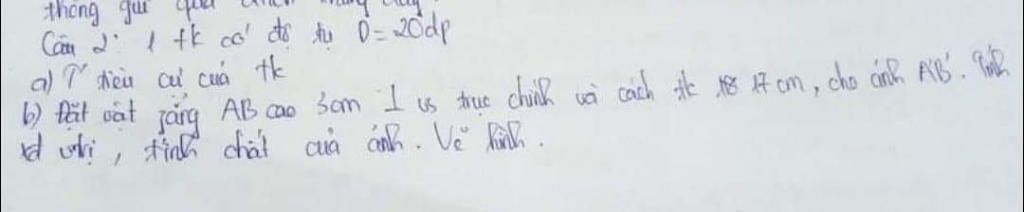 thông gửi qua
Câu 2: 1 tk có độ tụ D = 20 dp
a) T' tiêu cự của tk
b) Đặt vật sáng AB cao 3cm ⊥ vs trục chính và cách tk 17 cm, cho ảnh A'B'.
xđ vtrị, tính chất của ảnh. Vẽ hình.